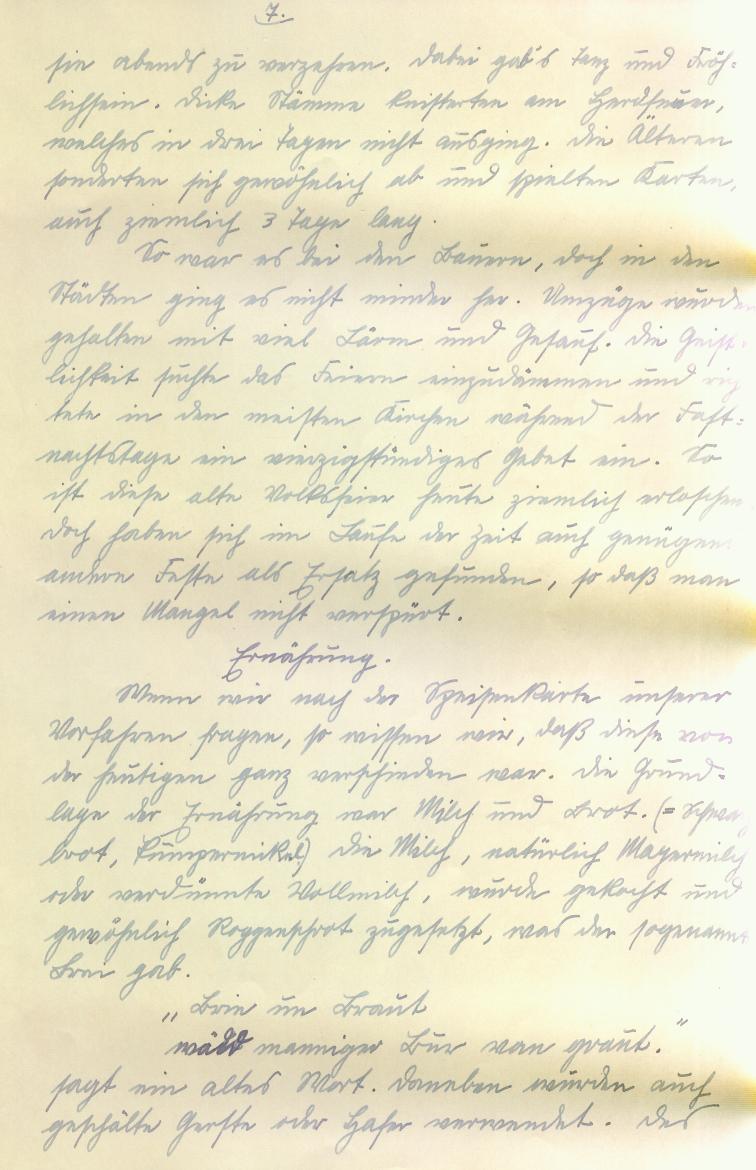 7.
sie abends zu verzehren. Dabei gab's Tanz und Fröh-
lichsein. Dicke Stämme knisterten am Herdfeuer,
welches in drei Tagen nicht ausging. Die Älteren
sonderten sich gewöhnlich ab und spielten Karten,
auch ziemlich 3 Tage lang.
So war es bei den Bauern, doch in den
Städten ging es nicht minder her. Umzüge wurden
gehalten mit viel Lärm und Gesauf. Die Geist-
lichkeit suchte das Feiern einzudämmen und rich
tete in den meisten Kirchen während der Fast-
nachtstage ein vierzigstündiges Gebet ein. So
ist diese alte Volksfeier heute ziemlich erloschen
doch haben sich im Laufe der Zeit auch genügend
andere Feste als Ersatz gefunden, so daß man
einen Mangel nicht verspürt.
Ernährung.
Wenn wir nach der Speisenkarte unserer
Vorfahren fragen, so wissen wir, daß diese von
der heutigen ganz verschieden war. Die Grund-
lage der Ernährung war Milch und Brot. (= Schwarz
brot, Pumpernikel) Die Milch, natürlich Magermilch
oder verdünnte Vollmilch, wurde gekocht und
gewöhnlich Roggenschrot zugesetzt, was den sogenannten
Brei gab.
„Brie un Braut
wäd manniger Bur van graut."
sagt ein altes Wort. Daneben wurden auch
geschälte Gerste oder Hafer verwendet. Des